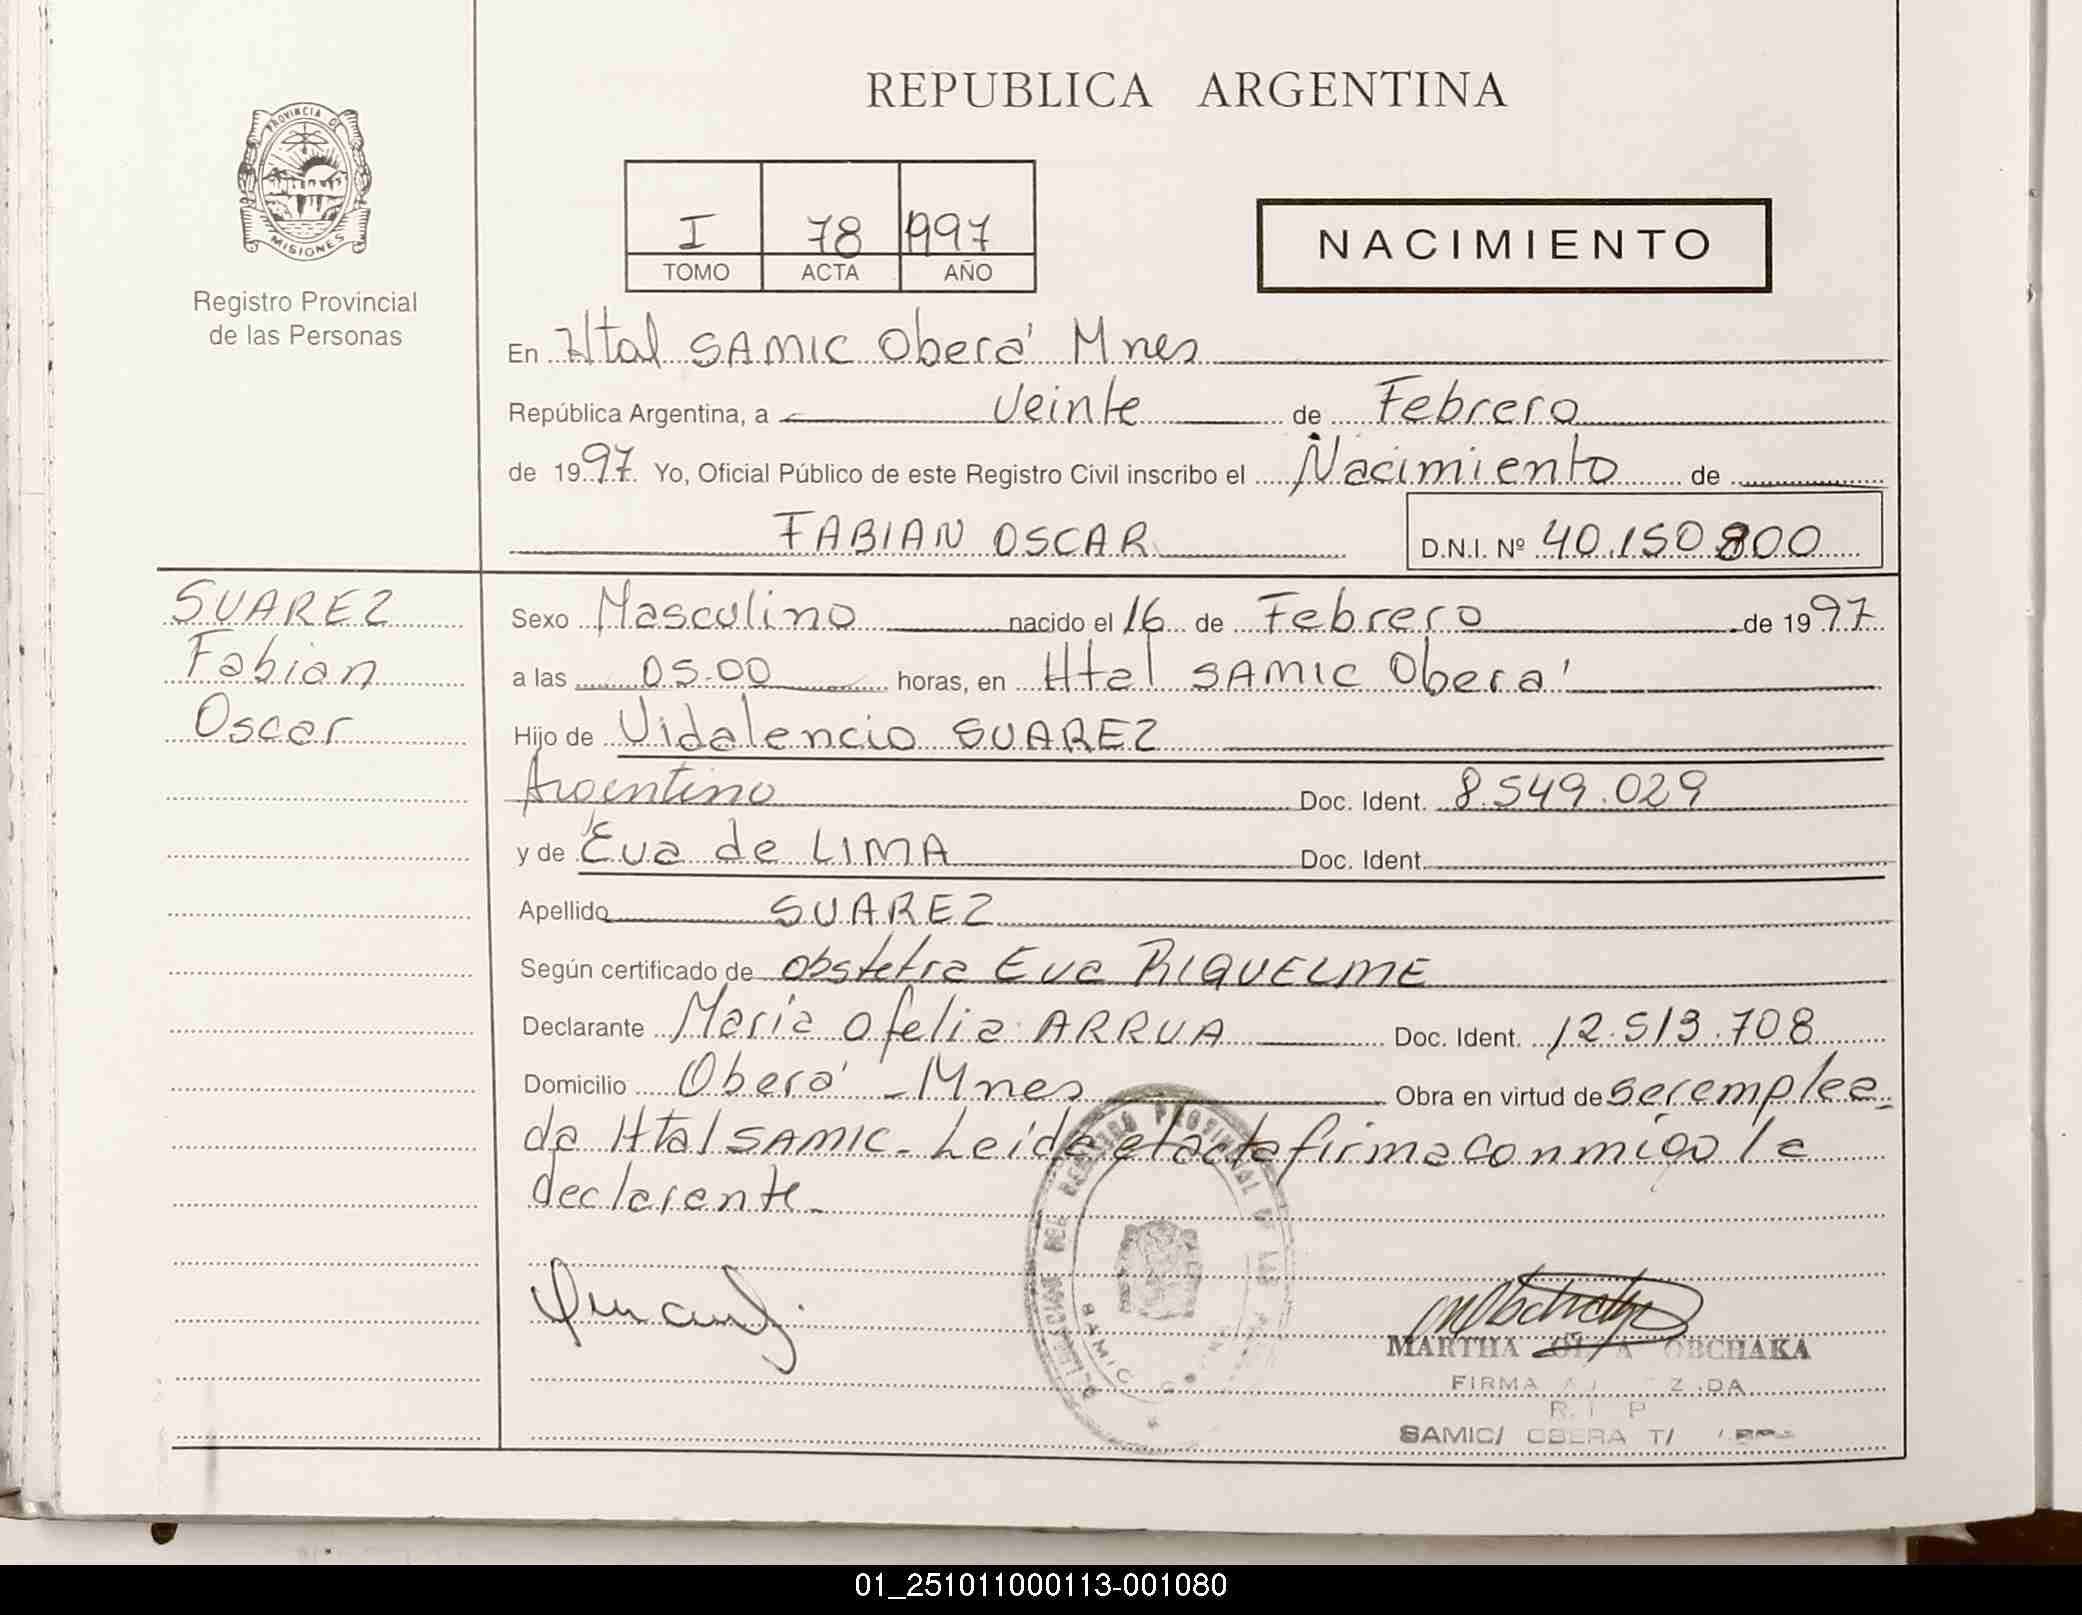 REPUBLICA ARGENTINA
PROVINCIA DE
MISIONES
Registro Provincial
de las Personas
I 78 1997
TOMO ACTA AÑO
NACIMIENTO
En Htal SAMIC Oberá Mnes
República Argentina, a veinte de Febrero
de 1997 Yo, Oficial Público de este Registro Civil inscribo el Nacimiento de
FABIAN OSCAR D.N.I. Nº 40.150.800
SUAREZ
Fabian
Oscar
Sexo Masculino nacido el 16 de Febrero de 1997
a las 05.00 horas, en Htal SAMIC Oberá
Hijo de Vidalencio SUAREZ
Argentino Doc. Ident. 8.549.029
y de Eva de LIMA Doc. Ident.
Apellido SUAREZ
Según certificado de obstetra Eva RIQUELME
Declarante Maria Ofelia ARRUA Doc. Ident. 12.513.708
Domicilio Oberá - Mnes Obra en virtud de ser emplea-
da Htal SAMIC. Leida el acta firma conmigo la
declarante.
DEL REGISTRO PROVINCIAL DE LAS
SAMIC
MARTHA OBCHAKA
FIRMA
SAMIC/ OBERA
01_251011000113-001080